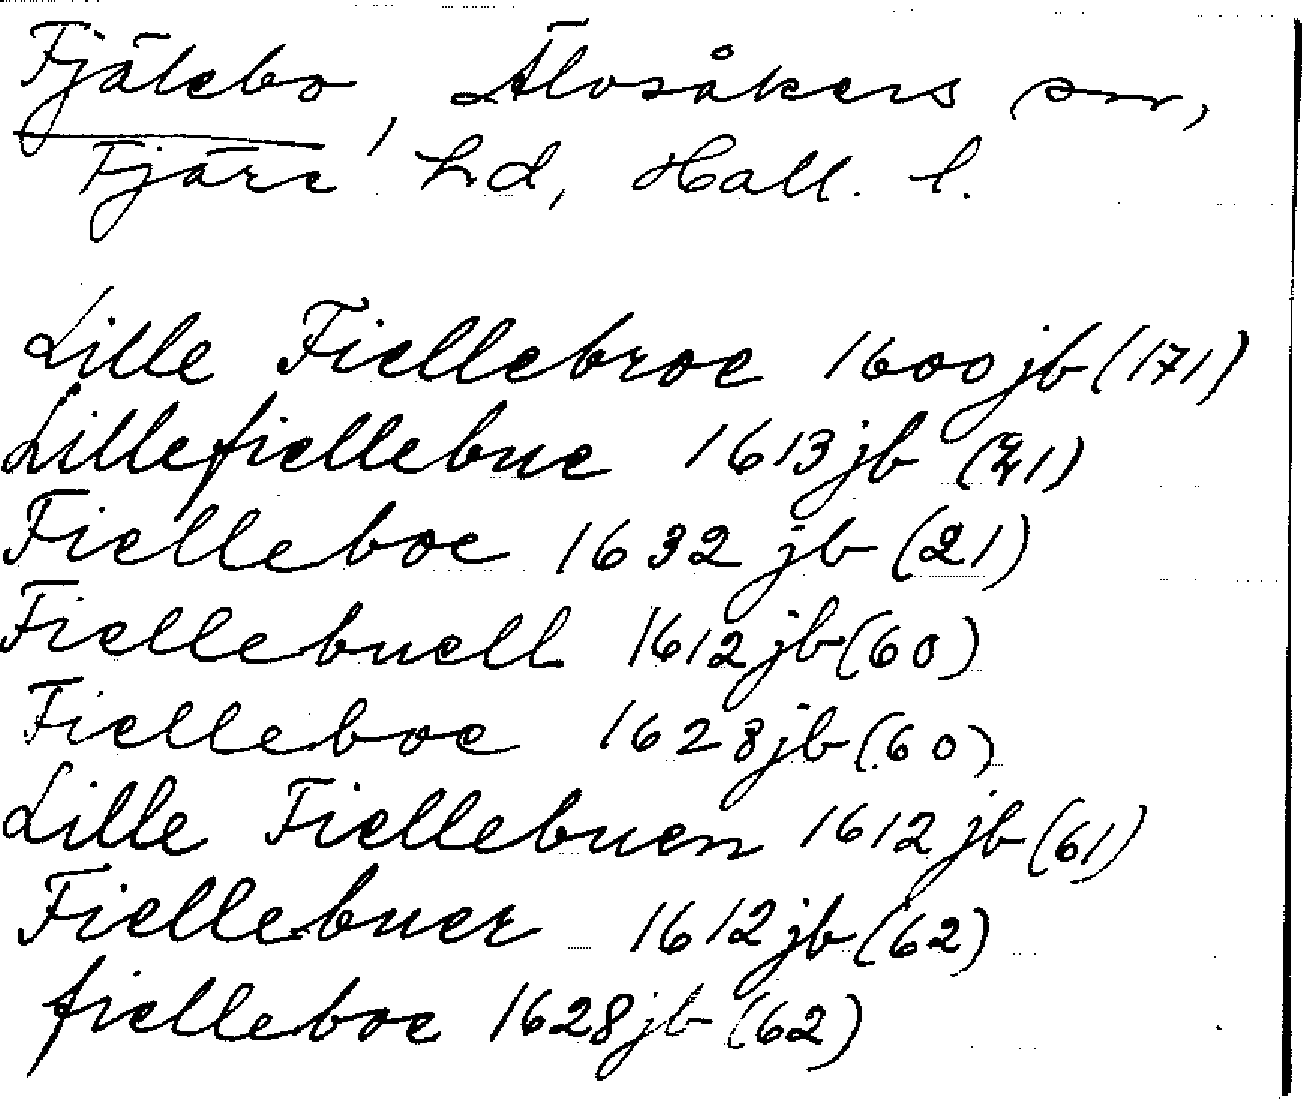 Fjälebo, Älvsåkers sn,
Fjäre hd, Hall. l.
Lille Fiellebroe 1600 jb (171)
Lillefiellebue 1613 jb (21)
Fielleboe 1632 jb (21)
Fiellebuell 1612 jb (60)
Fielleboe 1628 jb (60)
Lille Fiellebuen 1612 jb (61)
Fiellebuer 1612 jb (62)
fielleboe 1628 jb (62)